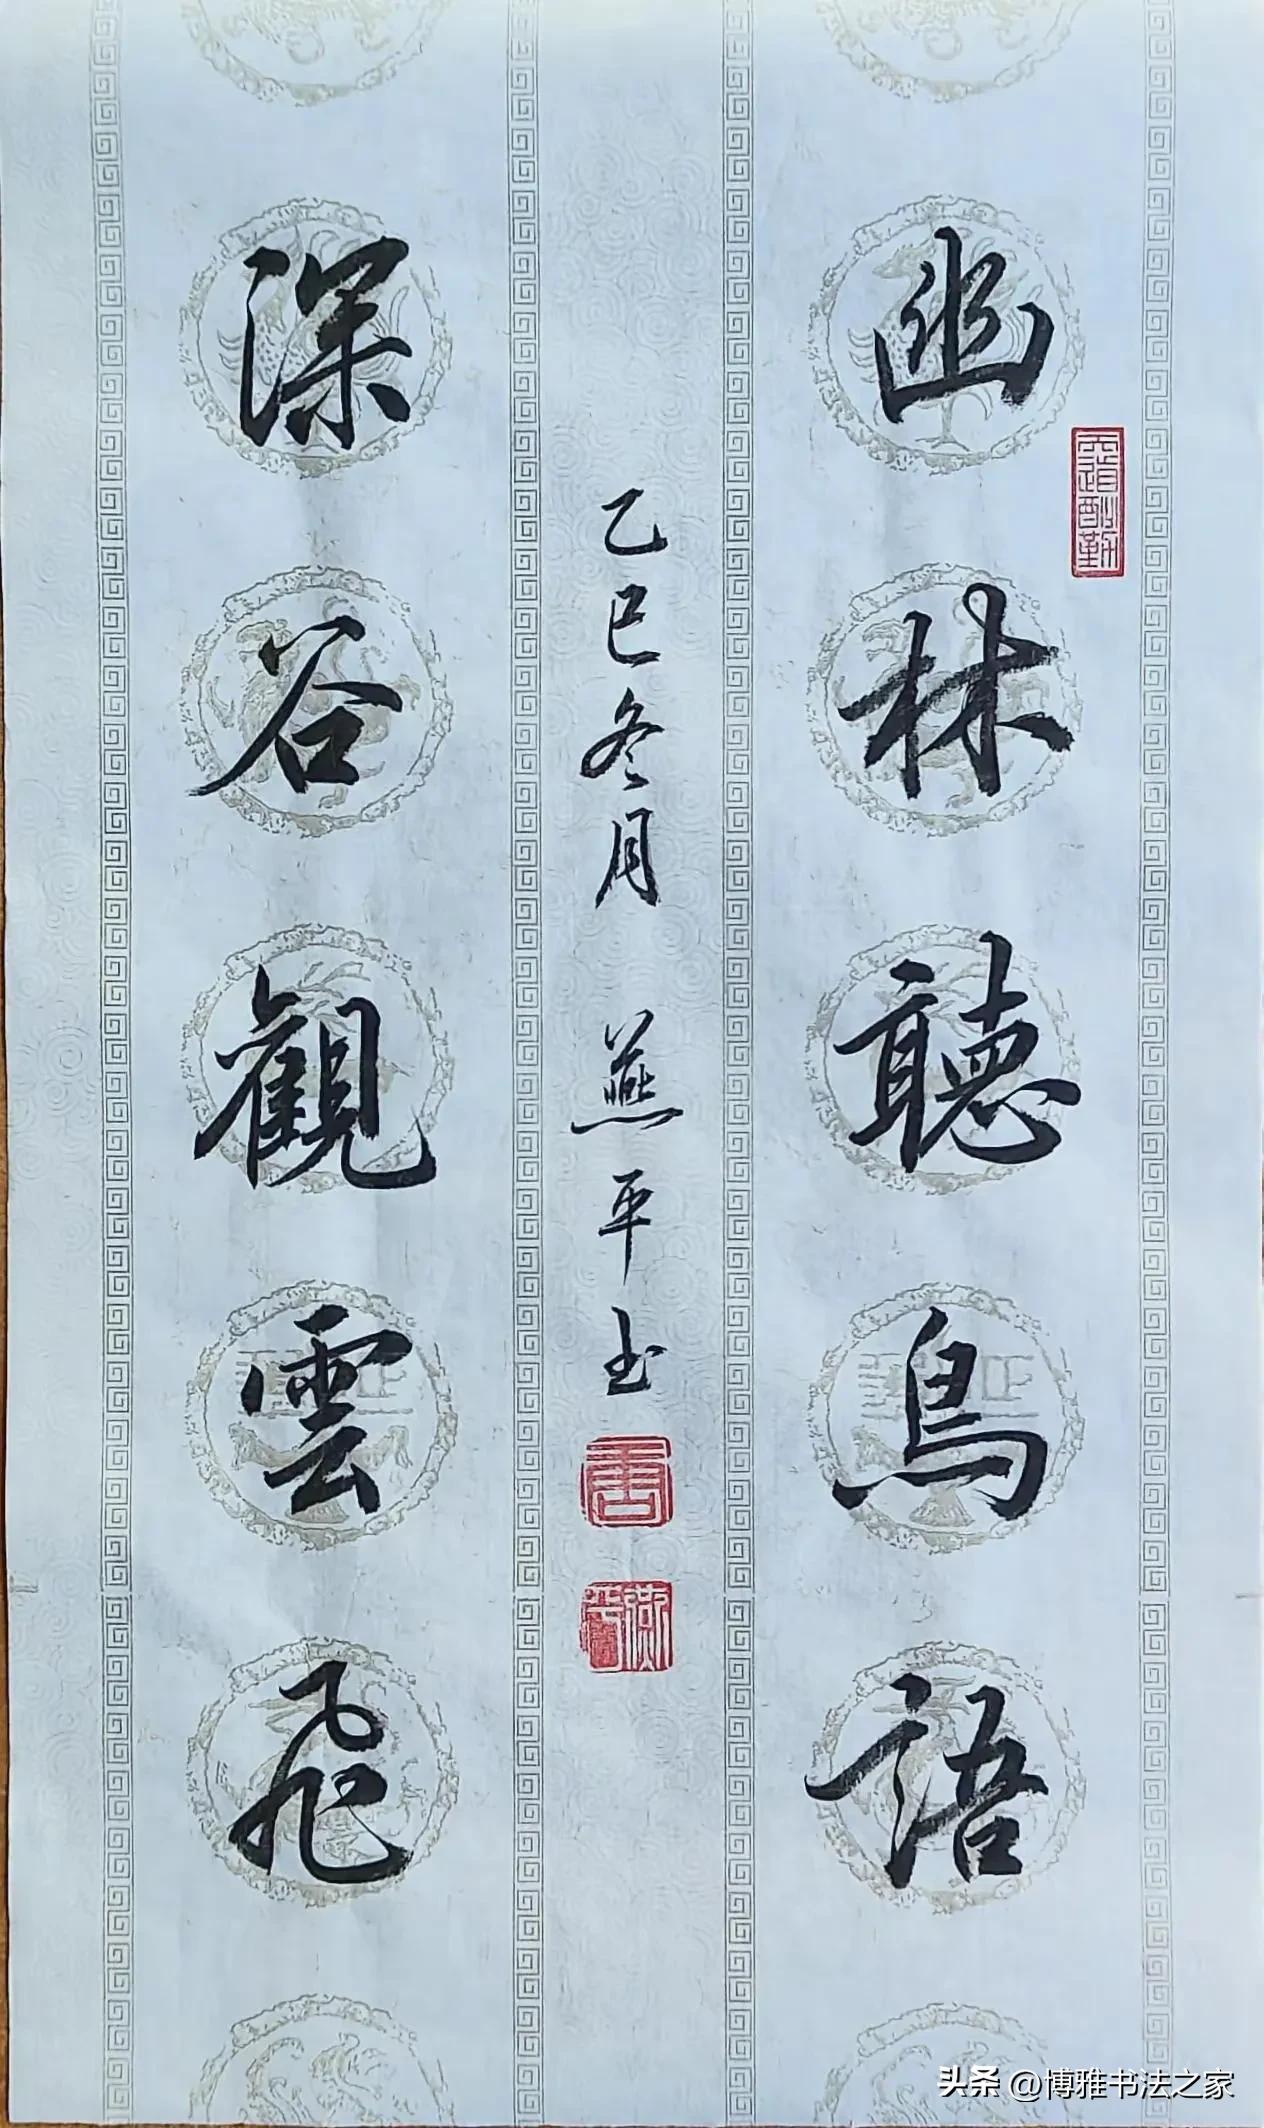 幽林聽鳥語
深谷觀雲飛
乙巳冬月 燕平書
天道酬勤
头条 @博雅书法之家